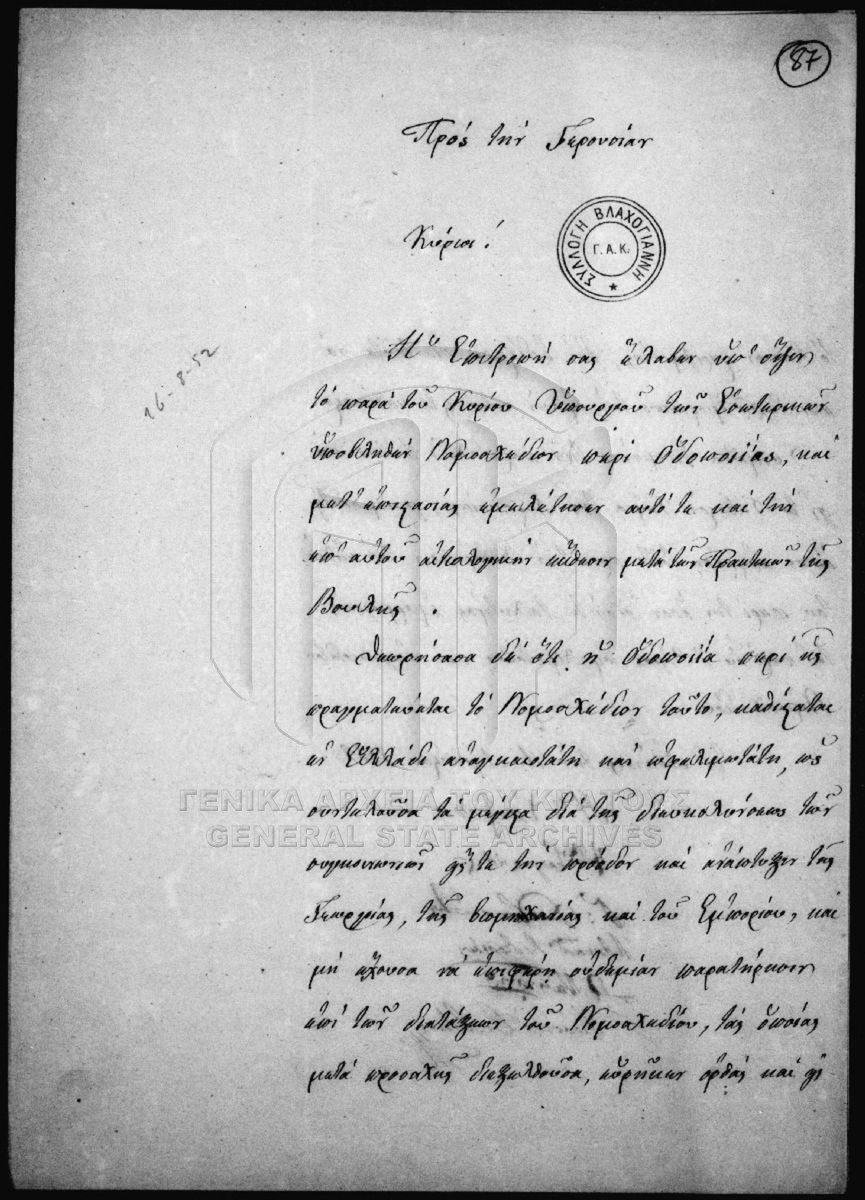 87
Πρός τήν Γερουσίαν
Κύριοι!
ΣΥΛΛΟΓΗ ΒΛΑΧΟΓΙΑΝΝΗ
Γ.Α.Κ.
16-8-52
Ἡ Ἐπιτροπή σας ἔλαβεν ὑπ' ὄψιν
τό παρά τοῦ Κυρίου Ὑπουργοῦ τῶν Ἐσωτερικῶν
ὑποβληθέν Νομοσχέδιον περί Ὁδοποιΐας, καί
μετ' ἐπιστασίας ἐμελέτησεν αὐτό τε καί τήν
ἐπ' αὐτοῦ αἰτιολογικήν ἔκθεσιν μετά τῶν Πρακτικῶν τῆς
Βουλῆς.
Θεωρήσασα δέ ὅτι ἡ Ὁδοποιΐα περί ἧς
πραγματεύεται τό Νομοσχέδιον τοῦτο, καθίσταται
ἐν Ἑλλάδι ἀναγκαιοτάτη καί ὠφελιμωτάτη, ὡς
συντελοῦσα τά μέγιστα διά τῆς διευκολύνσεως τῶν
συγκοινωνιῶν εἴς τε τήν πρόοδον καί ἀνάπτυξιν τῆς
Γεωργίας, τῆς βιομηχανίας καί τοῦ Ἐμπορίου, καί
μή ἔχουσα νά ἐπιφέρῃ οὐδεμίαν παρατήρησιν
ἐπί τῶν διατάξεων τοῦ Νομοσχεδίου, τάς ὁποίας
μετά προσοχῆς διεξελθοῦσα, εὕρηκεν ὀρθάς καί
ΓΕΝΙΚΑ ΑΡΧΕΙΑ ΤΟΥ ΚΡΑΤΟΥΣ
GENERAL STATE ARCHIVES